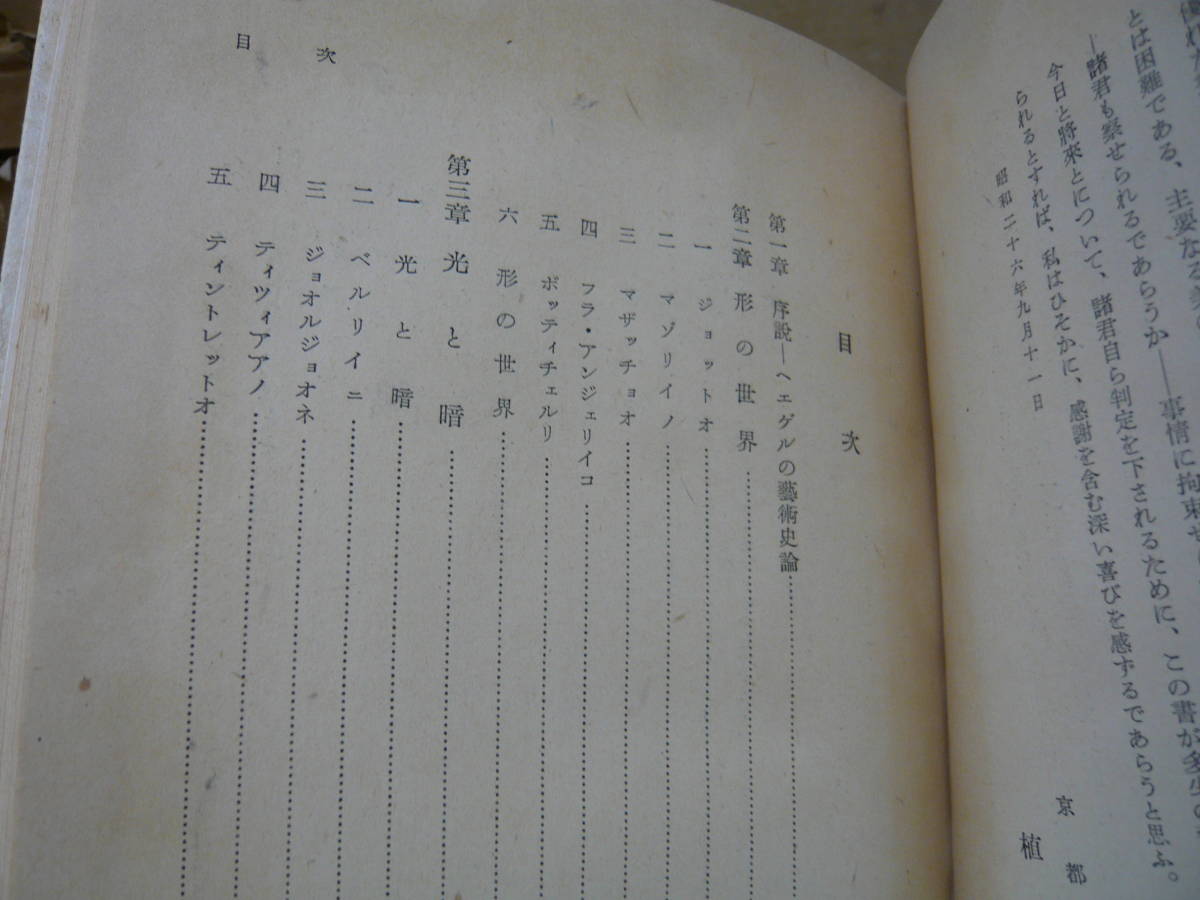 とは困難である、主要なる
―諸君も察せられるであらうか――事情に拘束せ
今日と將來とについて、諸君自ら判定を下されるために、この書が多
られるとすれば、私はひそかに、感謝を含む深い喜びを感ずるであらうと思ふ。
昭和二十六年九月十一日
京都
植
目次
第一章 序説―ヘエゲルの藝術史論
第二章 形の世界
一 ジョットオ
二 マゾリイノ
三 マザッチョオ
四 フラ・アンジェリイコ
五 ボッティチェルリ
六 形の世界
第三章 光と暗
一 光と暗
二 ベルリイニ
三 ジョオルジョオネ
四 ティツィアアノ
五 ティントレットオ
目次